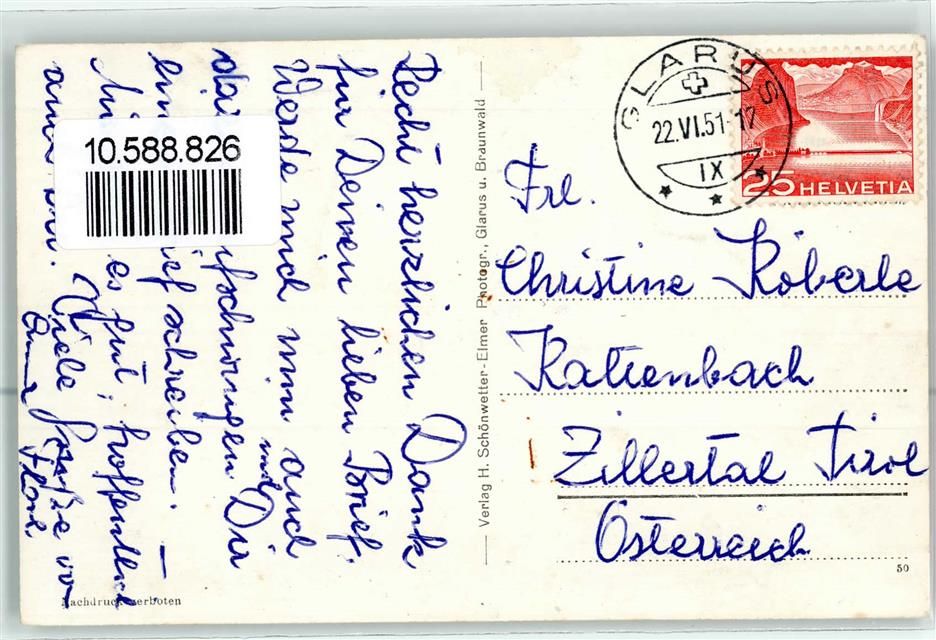 Recht herzlichen Dank
für Deinen lieben Brief.
Werde mich nun auch
mal
Dir
schreiben. –
es gut, hoffentlich
Viele Grüße von
10.588.826
Nachdruck verboten
Verlag H. Schönwetter-Elmer Photogr., Glarus u. Braunwald
GLARUS
22.VI.51-17
IX
25 HELVETIA
Frl.
Christine Köberle
Katzenbach
Zillertal Tirol
Österreich
50